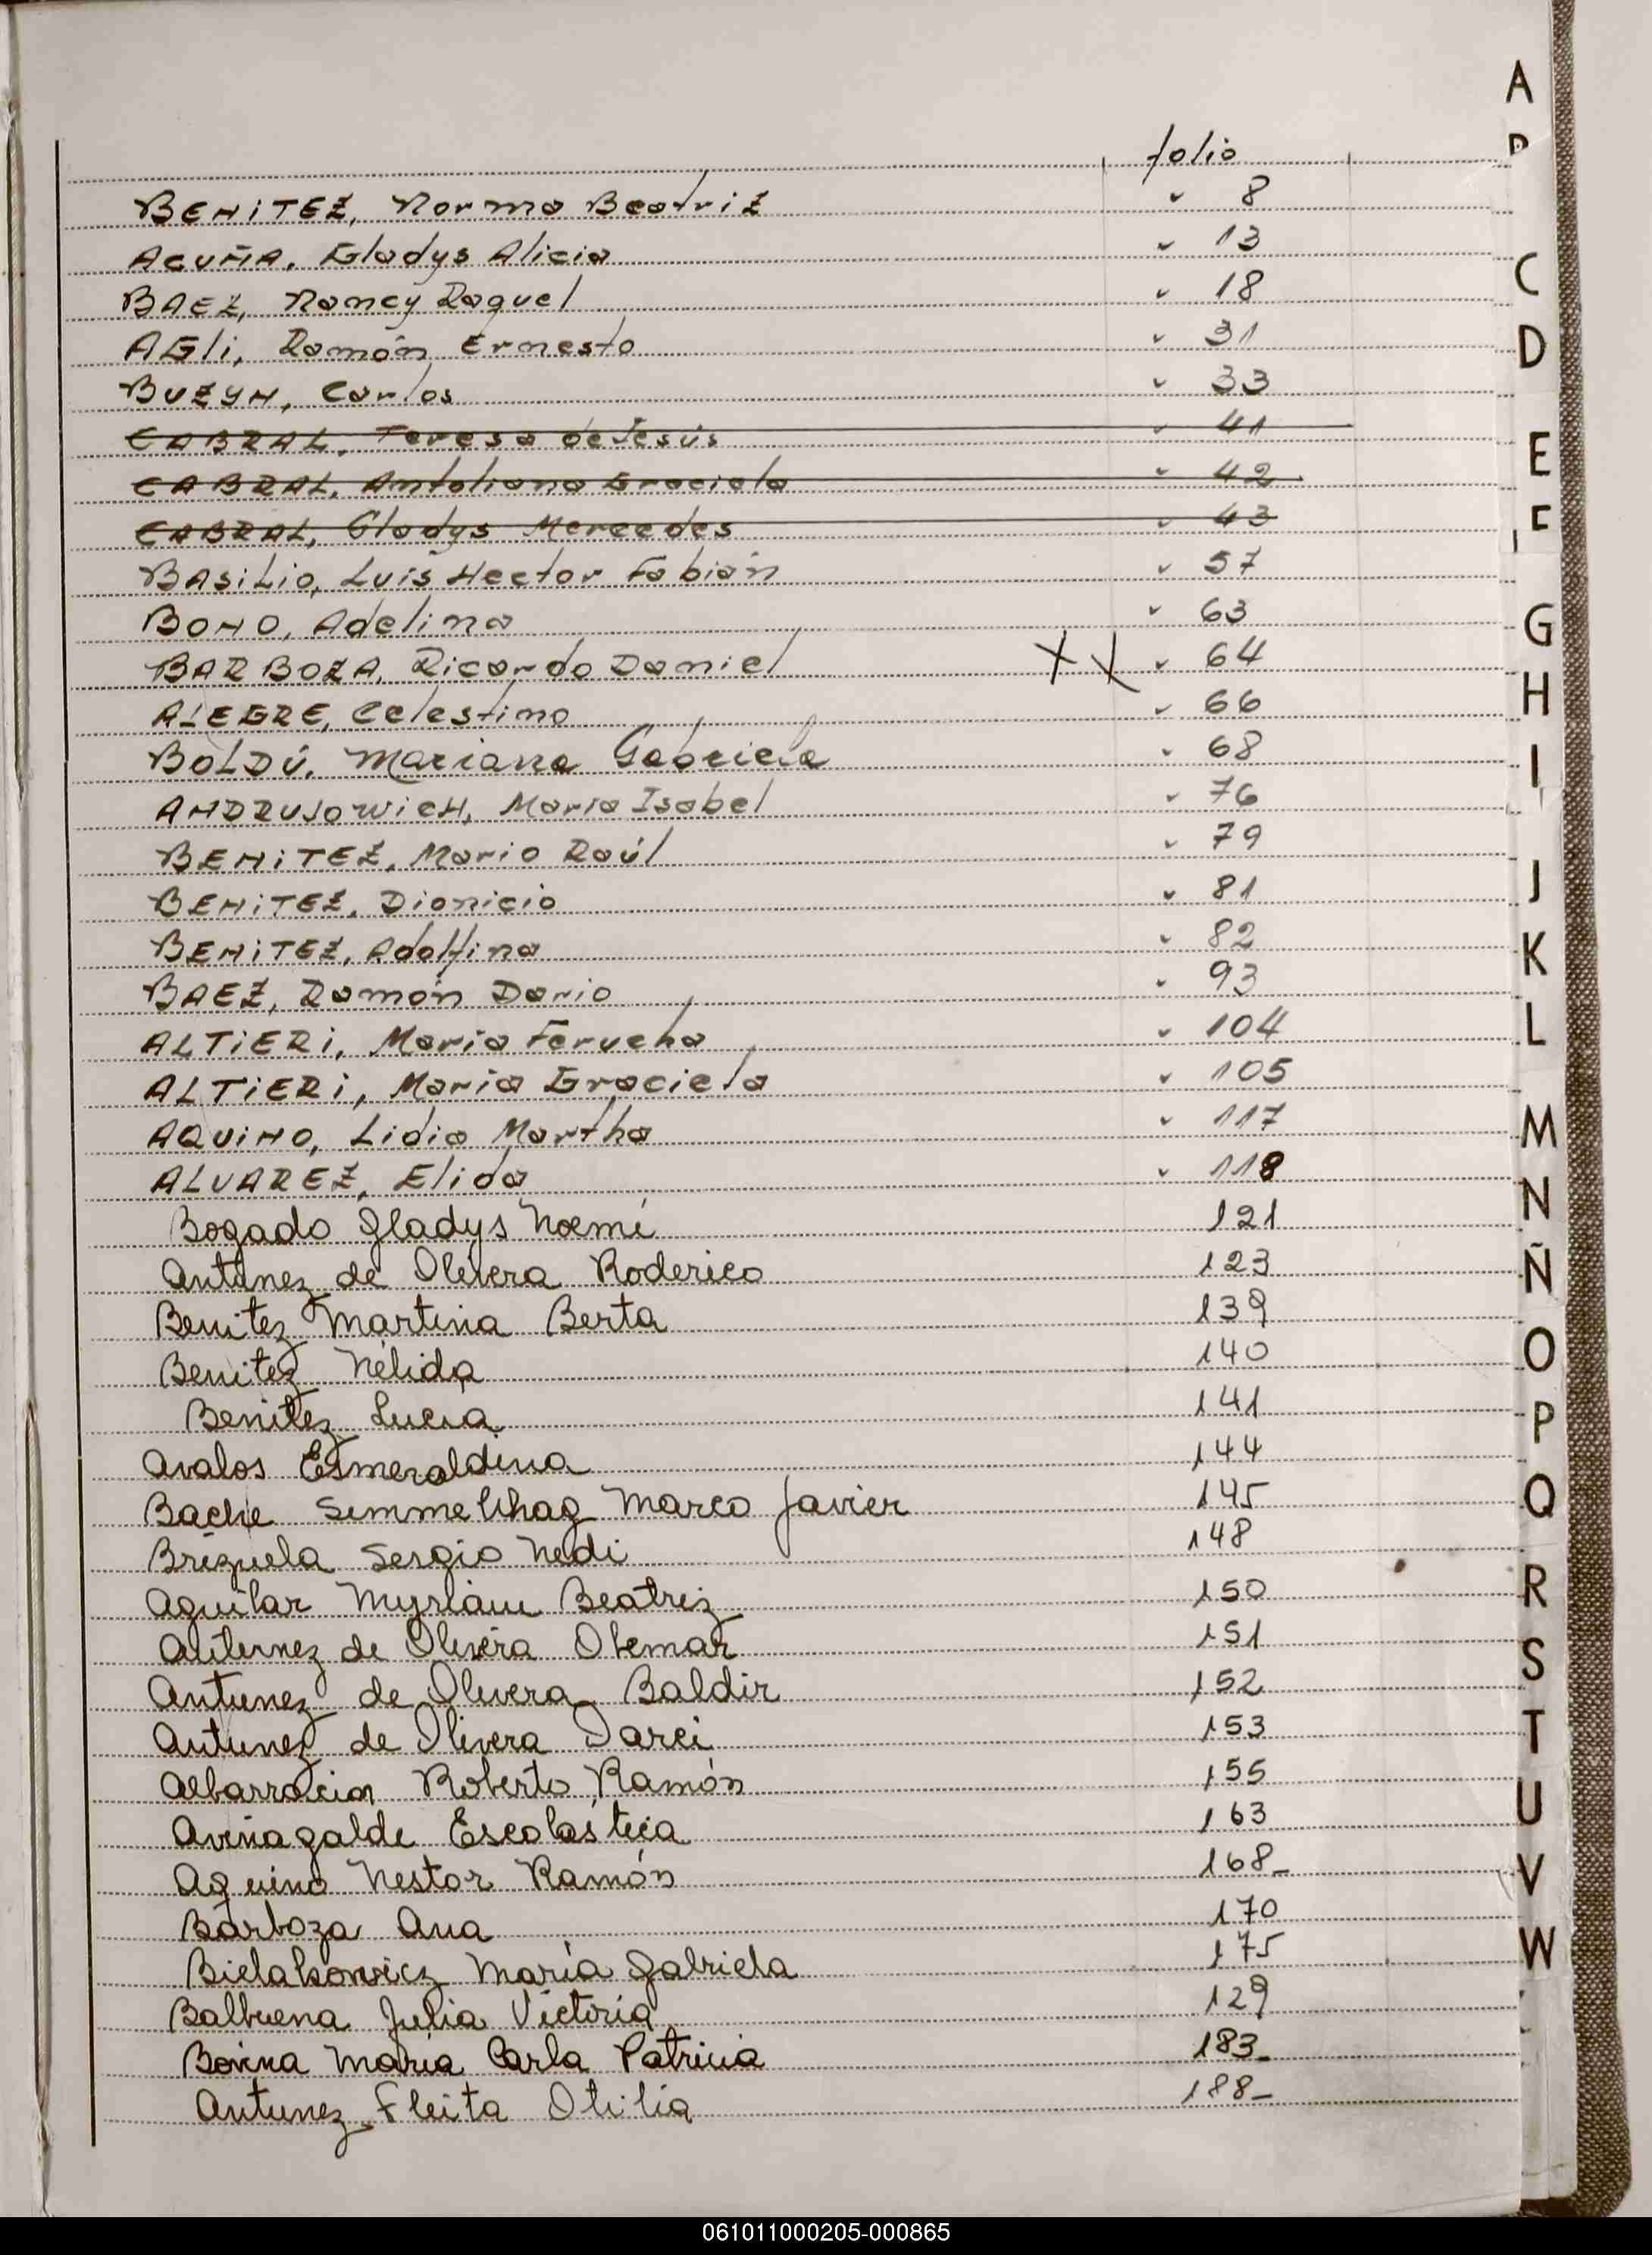 folio
BENITEZ, Norma Beatriz ✓ 8
ACUÑA, Gladys Alicia ✓ 13
BAEZ, Nancy Raquel ✓ 18
AGli, Ramón Ernesto ✓ 31
BUZYN, Carlos ✓ 33
CABRAL, Teresa de Jesús ✓ 41
CABRAL, Antoliana Graciela ✓ 42
CABRAL, Gladys Mercedes ✓ 43
BASILIO, Luis Hector Fabián ✓ 57
BONO, Adelina ✓ 63
BARBOZA, Ricardo Daniel X X ✓ 64
ALEGRE, Celestino ✓ 66
BOLDÚ, Mariana Gabriela ✓ 68
ANDRUSOWICH, Maria Isabel ✓ 76
BENITEZ, Mario Raúl ✓ 79
BENITEZ, Dionicio ✓ 81
BENITEZ, Adolfina ✓ 82
BAEZ, Ramón Dario ✓ 93
ALTIERI, Maria ✓ 104
ALTIERI, Maria Graciela ✓ 105
AQUINO, Lidia Martha ✓ 117
ALVAREZ, Elida ✓ 118
Bogado Gladys Noemí 121
Antunez de Olivera Roderico 123
Benitez Martina Berta 139
Benitez Nélida 140
Benitez Lucia 141
Avalos Esmeraldina 144
Bache Marco Javier 145
Brizuela Sergio Nedi 148
Aguilar Myriam Beatriz 150
Antunez de Olivera 151
Antunez de Olivera Baldir 152
Antunez de Olivera Darci 153
Albarracin Roberto Ramón 155
Aviñagalde Escolástica 163
Aquino Nestor Ramón 168-
Barboza Ana 170
Bielakowicz María Gabriela 175
Balbuena Julia Victoria 129
Maria Carla Patricia 183-
Antunez Fleita Otilia 188-
A
C
D
E
F
G
H
I
J
K
L
M
N
Ñ
O
P
Q
R
S
T
U
V
W
061011000205-000865